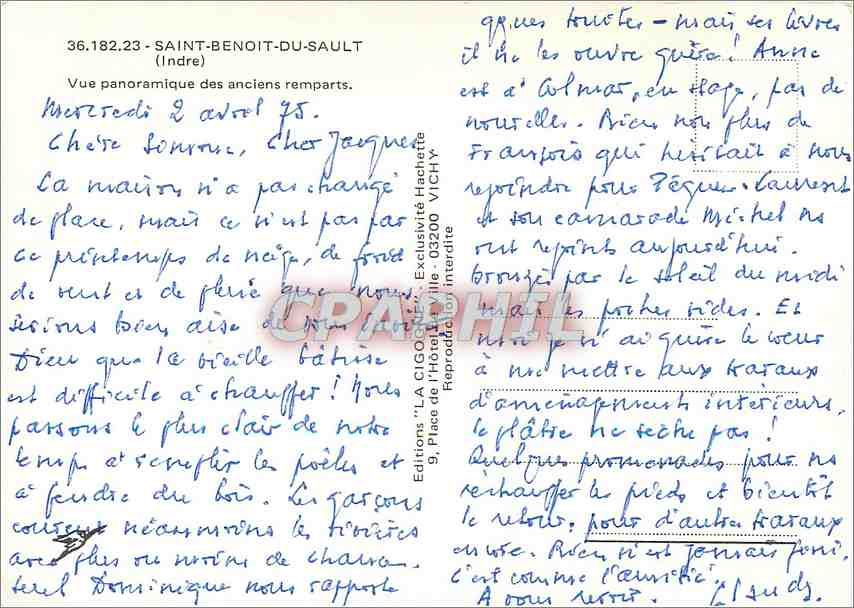 36.182.23 - SAINT-BENOIT-DU-SAULT
(Indre)
Vue panoramique des anciens remparts.
Mercredi 2 avril 75.
Chère Simone, Cher Jacques
La maison n'a pas changé
de place, mais ce n'est pas par
ce printemps de neige, de froid
de vent et de pluie que nous
serions bien aise de vous
Dieu que la vieille bâtisse
est difficile à chauffer ! Nous
passons le plus clair de notre
temps à remplir les poêles et
à fendre du bois. Les garçons
courent néanmoins les rivières
avec plus ou moins de chance.
Seul Dominique nous rapporte
Editions "LA CIGOGNE" - Exclusivité Hachette
9, Place de l'Hôtel de Ville - 03200 VICHY
Reproduction interdite
CPARHIL
qques truites - mais ses livres
il ne les ouvre guère ! Anne
est à Colmar, en stage, pas de
nouvelles. Rien non plus de
François qui hésitait à nous
rejoindre pour Pâques. Laurent
et son camarade Michel nous
ont rejoints aujourd'hui.
bronzés par le soleil du midi
mais les poches vides. Et
moi je n'ai guère le coeur
à me mettre aux travaux
d'aménagements intérieurs,
le plâtre ne sèche pas !
Quelques promenades pour nous
réchauffer les pieds et bientôt
le retour, pour d'autres travaux
encore. Rien n'est jamais fini.
C'est comme l'amitié.
A vous revoir. Claude.